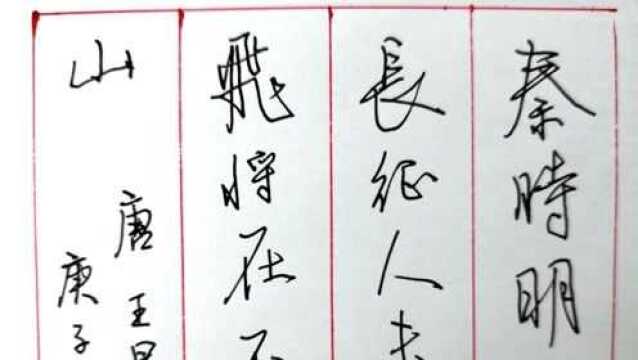 秦時明
長征人未
飛将在
山
唐王昌
庚子